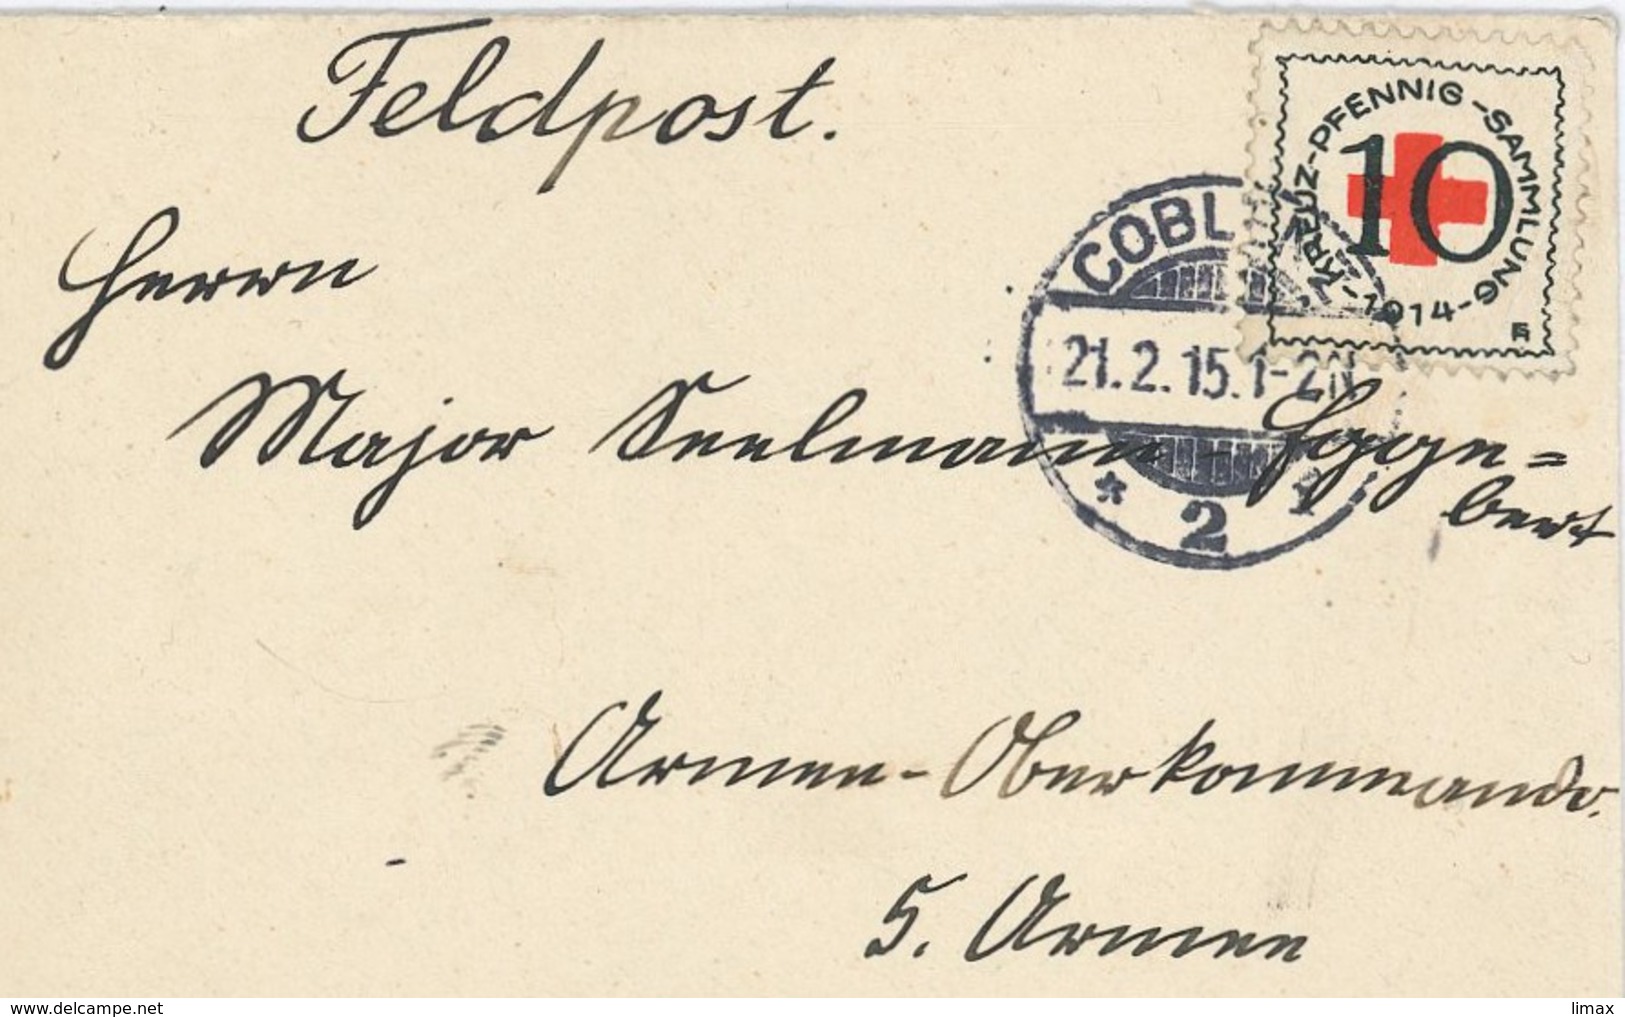 Feldpost.
KREUZ-PFENNIG-SAMMLUNG-1914-
10
Herrn
COBL
21.2.15.1-2N
Major Seelmann-Egge=
bert
* 2 1
Armee-Oberkommando.
5. Armee
www.delcampe.net
limax